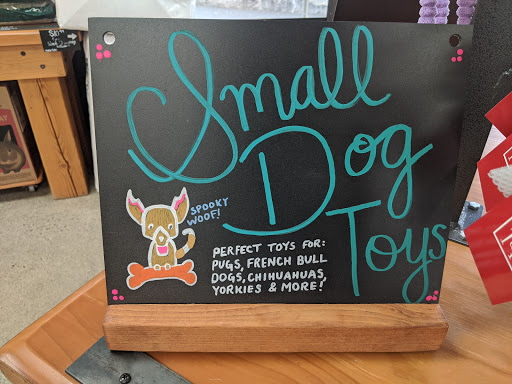 Small
Dog
Toys
SPOOKY
WOOF!
PERFECT TOYS FOR:
PUGS, FRENCH BULL
DOGS, CHIHUAHUAS,
YORKIES & MORE!